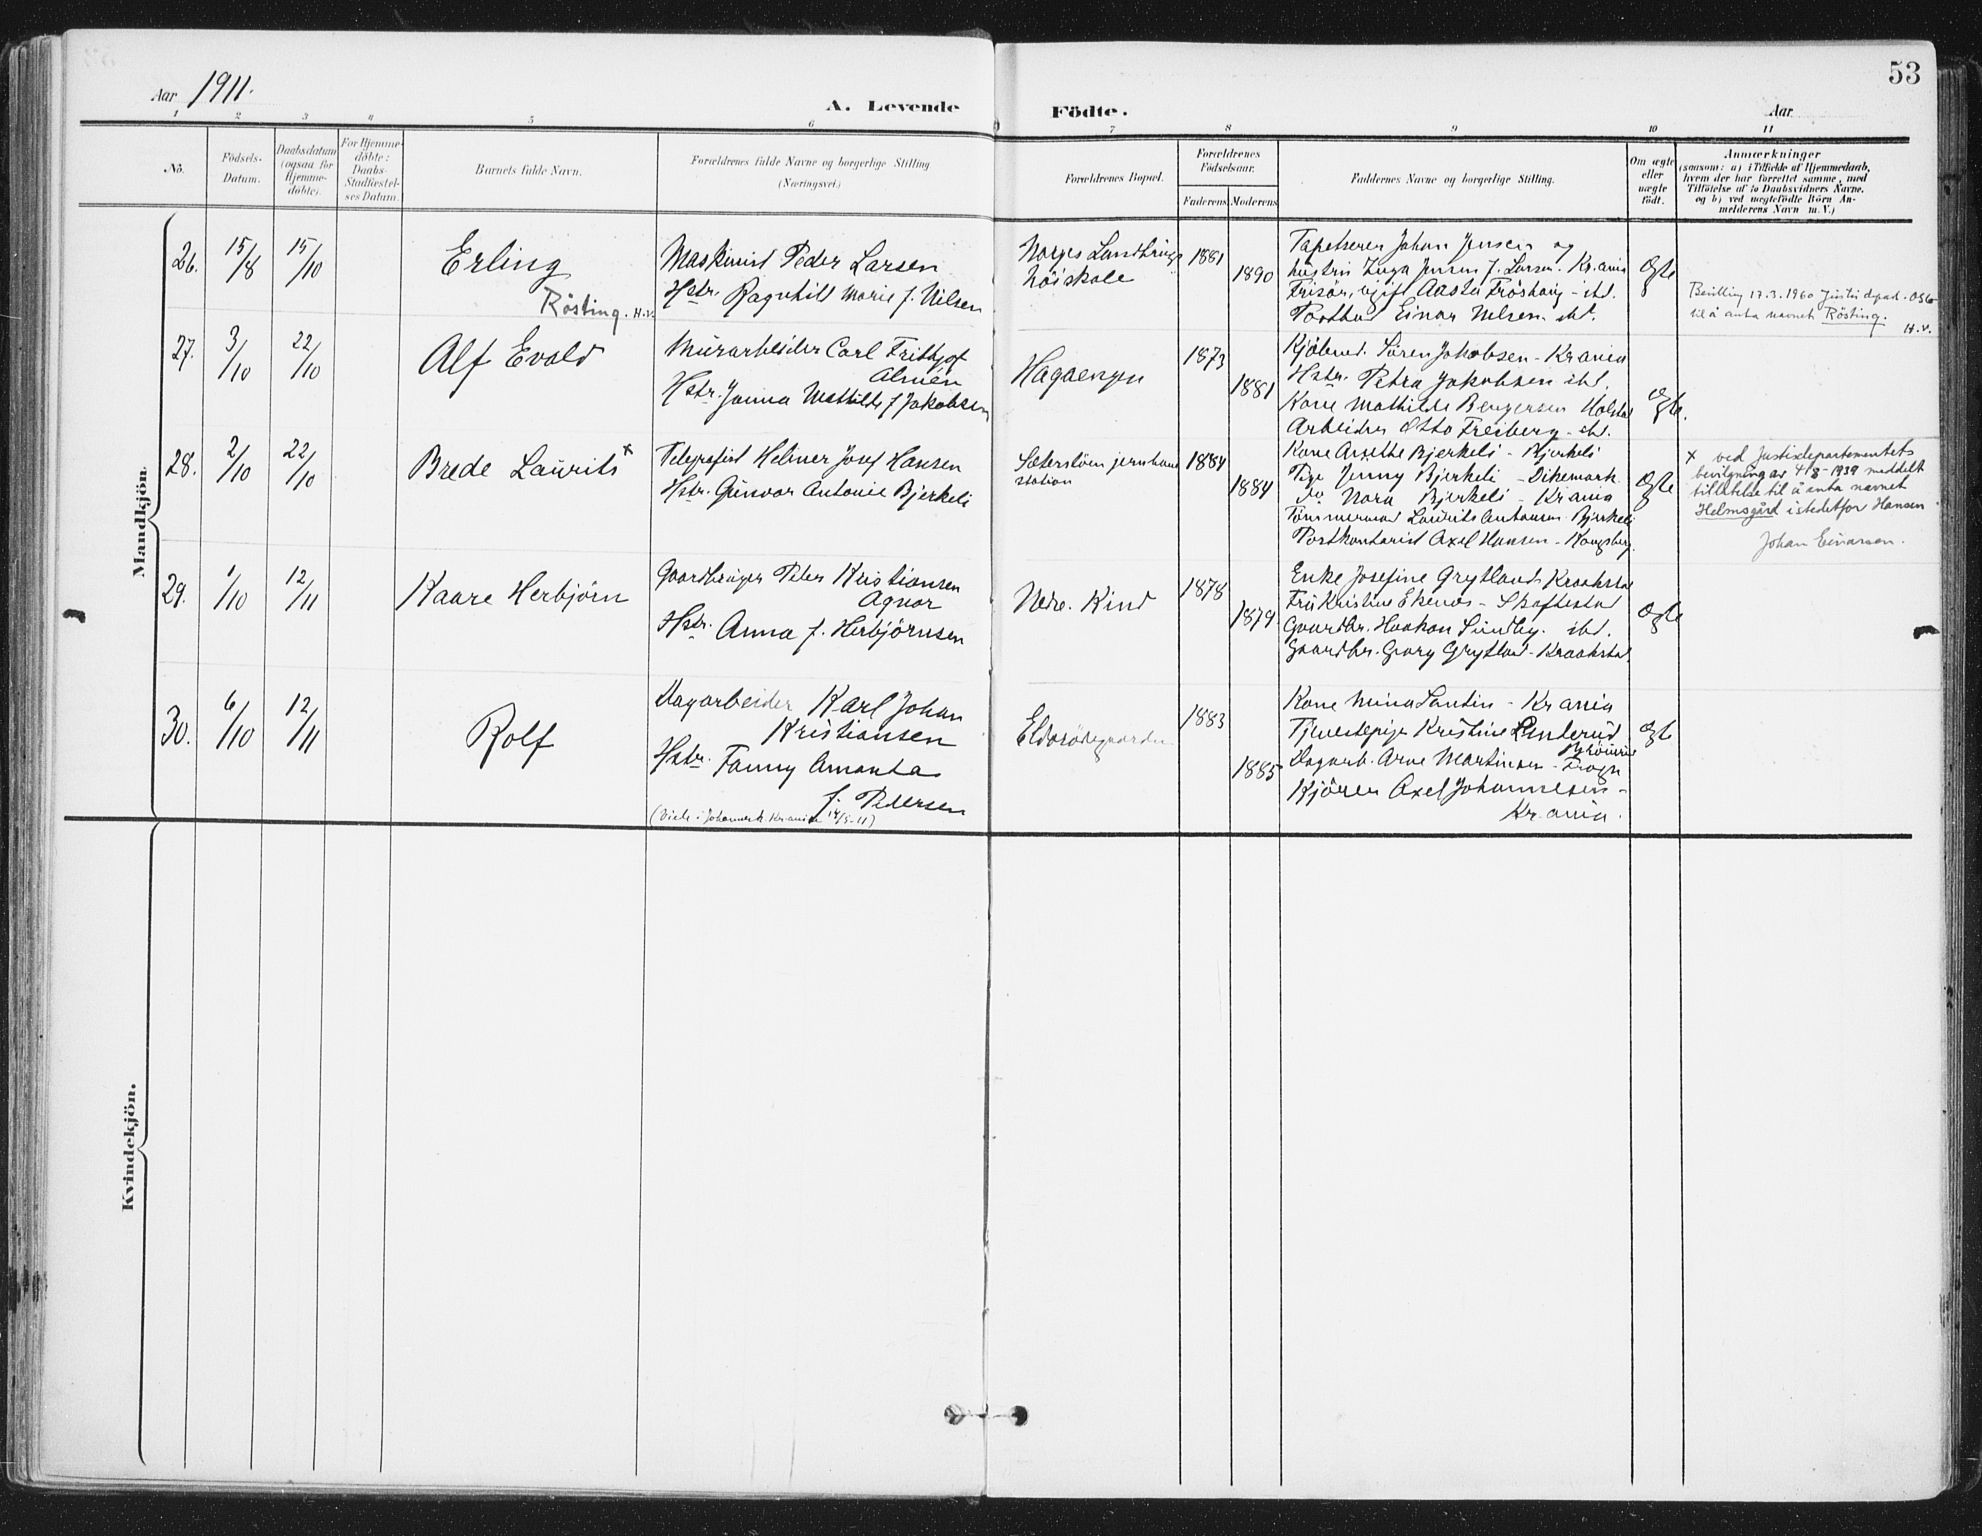 53
Aar 1911.
A. Levende Födte.
Aar
1 2 3 4 5 6 7 8 9 10 11
No.
Födsels-
Datum.
Daabsdatum
(ogsaa for
Hjemme-
döbte).
For Hjemme-
döbte:
Daabs-
Stadfæstel-
ses Datum.
Barnets fulde Navn.
Forældrenes fulde Navne og borgerlige Stilling
(Næringsvei.)
Forældrenes Bopæl.
Forældrenes
Födselsaar.
Faderens Moderens
Faddernes Navne og borgerlige Stilling.
Om ægte
eller
uægte
födt.
Anmærkninger
(saasom: a) i Tilfælde af Hjemmedaab,
hvem der har forrettet samme, med
Tilföielse af to Daabsvidners Navne,
og b) ved uægtefödte Börn An-
melderens Navn m. V.)
Mandkjön.
26. 15/8 15/10
Erling
Rösting. H.V.
Maskinist Peder Larsen
Hstr. Ragnhild Marie f. Nilsen
Norges Landbrugs
höiskole
1881
1890
Tapetserer Johan Jensen og
hustru Inga Jensen f. Larsen. Kr.ania
Frisör, ugift Aasta Fröshaug - ibd.
Postbud Einar Nilsen ibd.
Ægte
Bevilling 17.3.1960 Justisdepad. Oslo
til å anta navnet Rösting.
H.V.
27. 3/10 22/10
Alf Evald
Murarbeider Carl Frithjof
Almén
Hstr. Janna Mathilde f. Jakobsen
Hagaengen
1873
1881
Kjöbmd. Sören Jakobsen - Kr.ania
Hstr. Petra Jakobsen ibd.
Kone Mathilde Bengersen Holstad
Arbeider Otto Freiberg - ibd.
Ægte.
28. 2/10 22/10
Brede Laurits x
Telegrafist Helmer Josef Hansen
Hstr. Gunvor Antonie Bjerkeli
Sæterstöen jernbane
station
1884
1884
Kone Anette Bjerkeli - Bjerkeli
Pige Jenny Bjerkeli - Dikemark
do Nora Bjerkeli - Kr.ania
Tömmermand Laurits Antonsen Bjerkeli
Postkontorist Axel Hansen - Kongsberg.
Ægte
x ved Justisdepartementets
bevilgning av 4/8-1939 meddelt
tillatelse til å anta navnet
Helmsgård istedetfor Hansen.
Johan Einarsen.
29. 1/10 12/11
Kaare Herbjörn
Gaardbruger Peter Kristiansen
Agnor
Hstr. Anna f. Herbjörnsen
Nedre. Kind
1878
1879.
Enke Josefine Grytland Kraakstad
Fru Kristine Ekenes - Skoftestad
Gaardbr. Haakon Sundby. ibd.
Gaardbr. Georg Grytland - Kraakstad.
Ægte
30. 6/10 12/11
Rolf
Dagarbeider Karl Johan
Kristiansen
Hstr. Fanny Amanta
f. Pedersen
(Viede i Johannesk. Kr.ania 14/5-11)
1883
1885
Kone Mina Santin - Kr.ania
Tjenestepige Kristine Linderud
Dagarb. Arve Martinsen - Frogn
Kjörer Axel Johannesen -
Kr.ania.
Ægte
Kvindekjön.